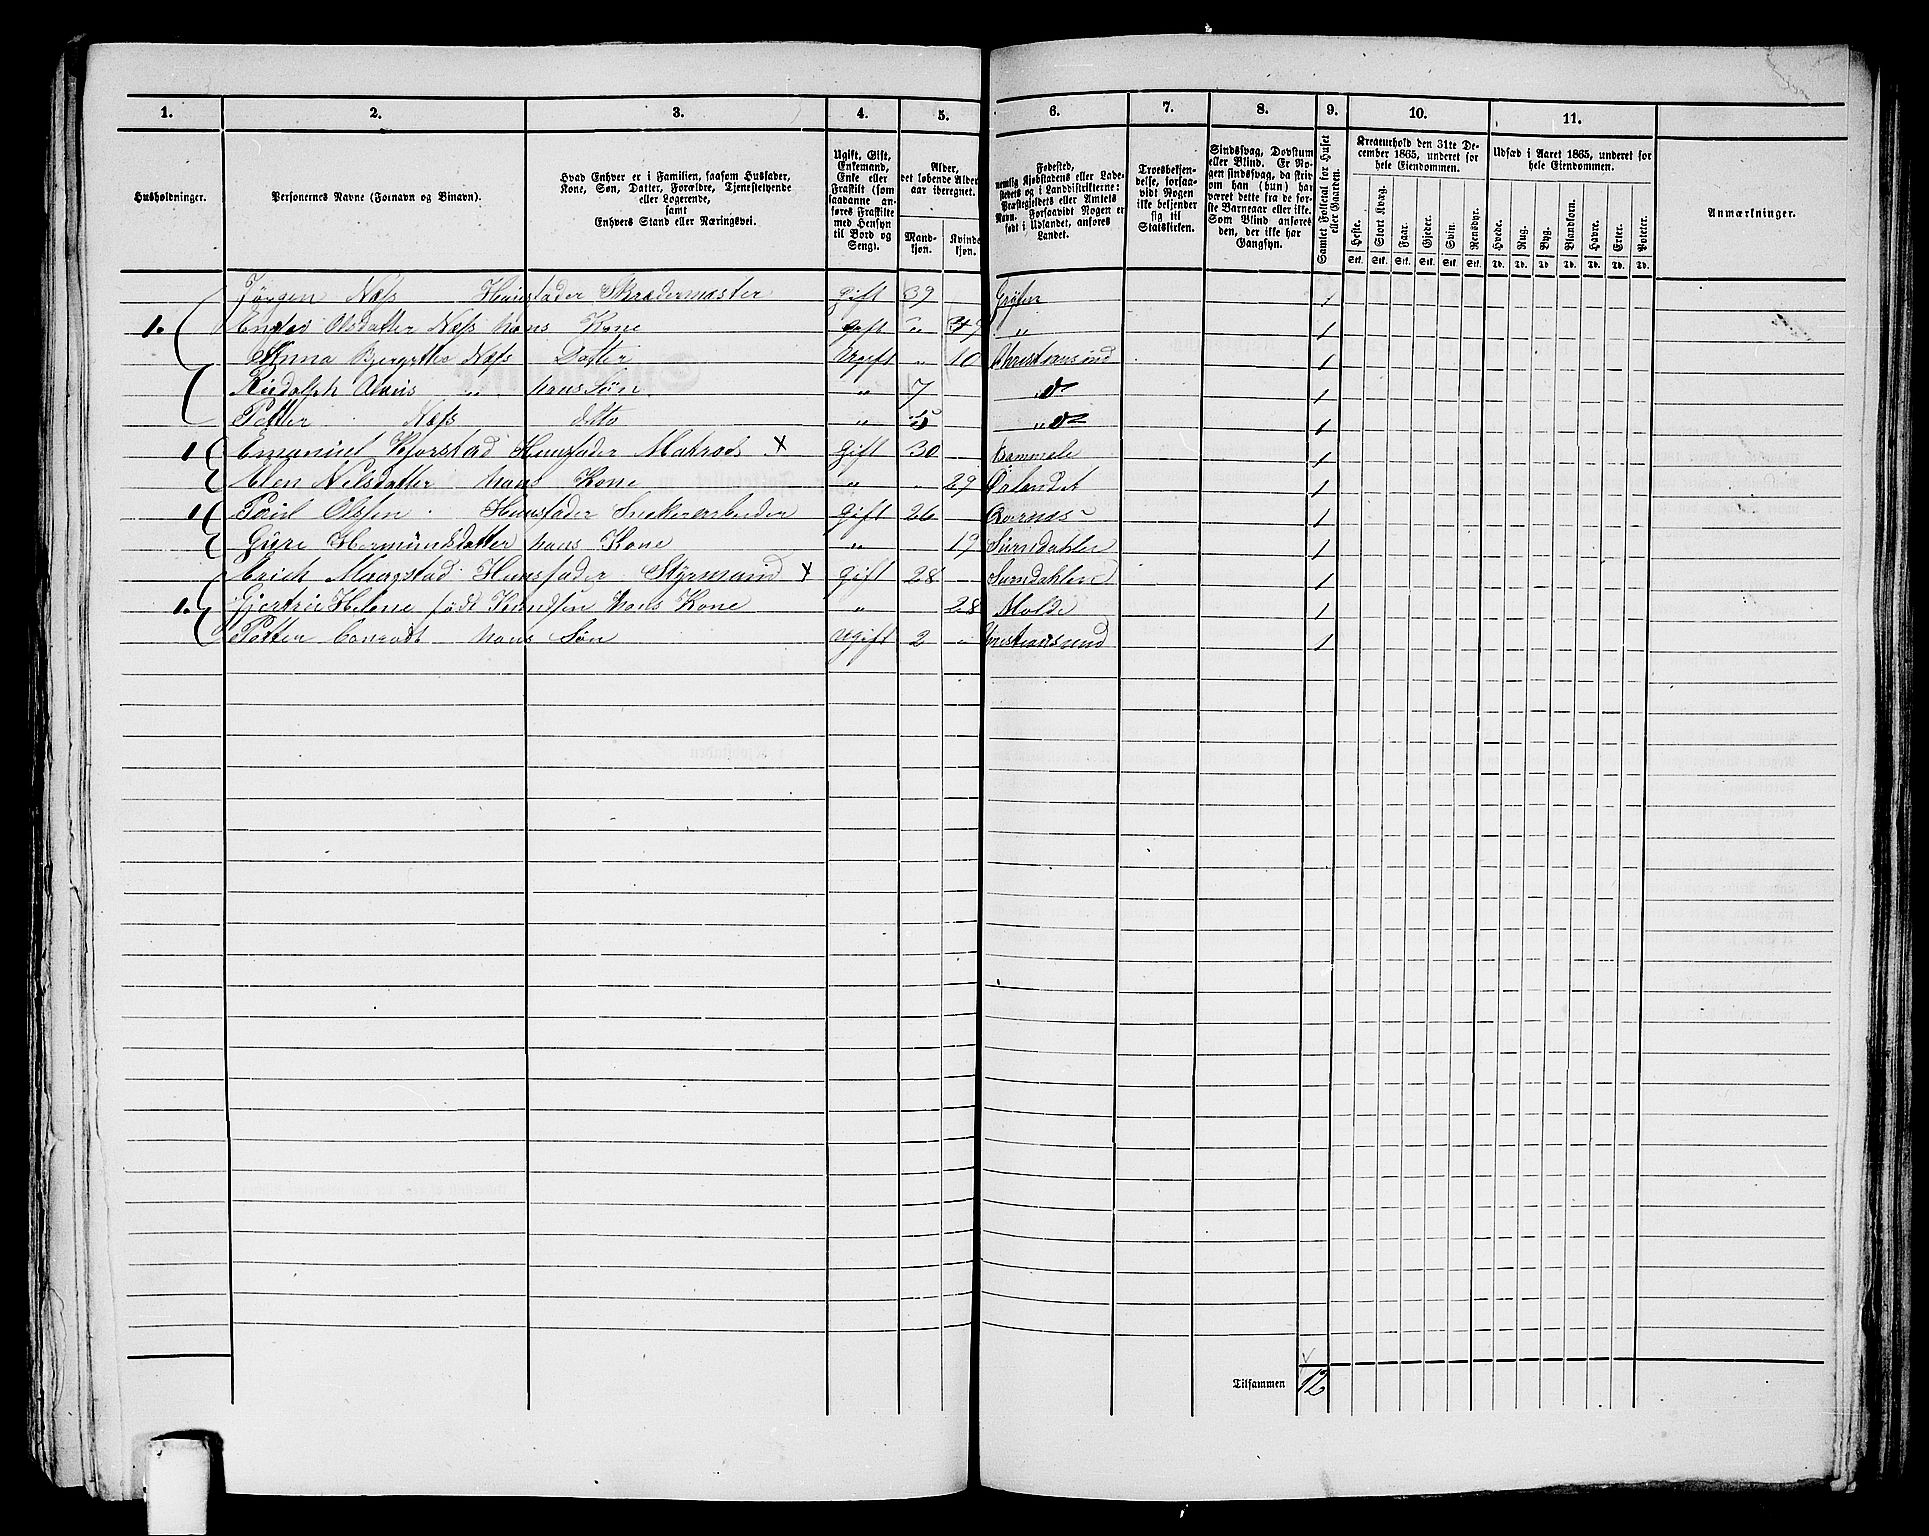 1. 2. 3. 4. 5. 6. 7. 8. 9. 10. 11.
Husholdninger.
Personernes Navne (Fornavn og Binavn).
Hvad Enhver er i Familien, saasom Husfader, Kone, Søn, Datter, Forældre, Tjenestetyende eller Logerende, samt Enhvers Stand eller Næringsvei.
Ugift, Gift, Enkemand, Enke eller Fraskilt (som saadanne anføres Fraskilte med Hensyn til Bord og Seng).
Alder, det løbende Alders aar iberegnet.
Mandkjøn. Kvindekjøn.
Fødested, nemlig Kjøbstadens eller Ladestedets og i Landdistrikterne: Præstegjeldets eller Amtets Navn. Forsaavidt Nogen er født i Udlandet, anføres Landet.
Troesbekjendelse, forsaavidt Nogen ikke bekjender sig til Statskirken.
Sindssvag, Døvstum eller Blind. Er Nogen sindssvag, da skrives om han (hun) har været dette fra de første Barneaar eller ikke. Som Blind anføres den, der ikke har Gangsyn.
Samlet Folketal for Huset eller Gaarden.
Kreaturhold den 31te December 1865, underet for hele Eiendommen.
Heste. Stort Kvæg. Faar. Gjeder. Svin. Rensdyr.
Stk. Stk. Stk. Stk. Stk. Stk.
Udsæd i Aaret 1865, underet for hele Eiendommen.
Hvede. Rug. Byg. Blandkorn. Havre. Erter. Poteter.
Td. Td. Td. Td. Td. Td. Td.
Anmærkninger.
Jörgen Næss Huusfader Skrædermester Gift 39 1
1. Olsdatter Næss hans Kone Gift " " 1
Anna Næss Datter Ugift " 10 Christiansund 1
Rudolph " hans Søn " 7 " 1
Petter Næss ditto " 5 " 1
1 Emanuel Huusfader Matros X Gift 30 1
Elen Nilsdatter hans Kone " " 29 Ørlandet 1
1 Poul Olsen Huusfader Snekerarbeider Gift 26 Qvernæs 1
Guri hans Kone " 19 Surndahlen 1
Erick Huusfader Styrmand X Gift 28 Surndahlen 1
1. Helene født Knudsen hans Kone " 28 Molde 1
Petter Conradt hans Søn Ugift 2 " Christiansund 1
Tilsammen 12